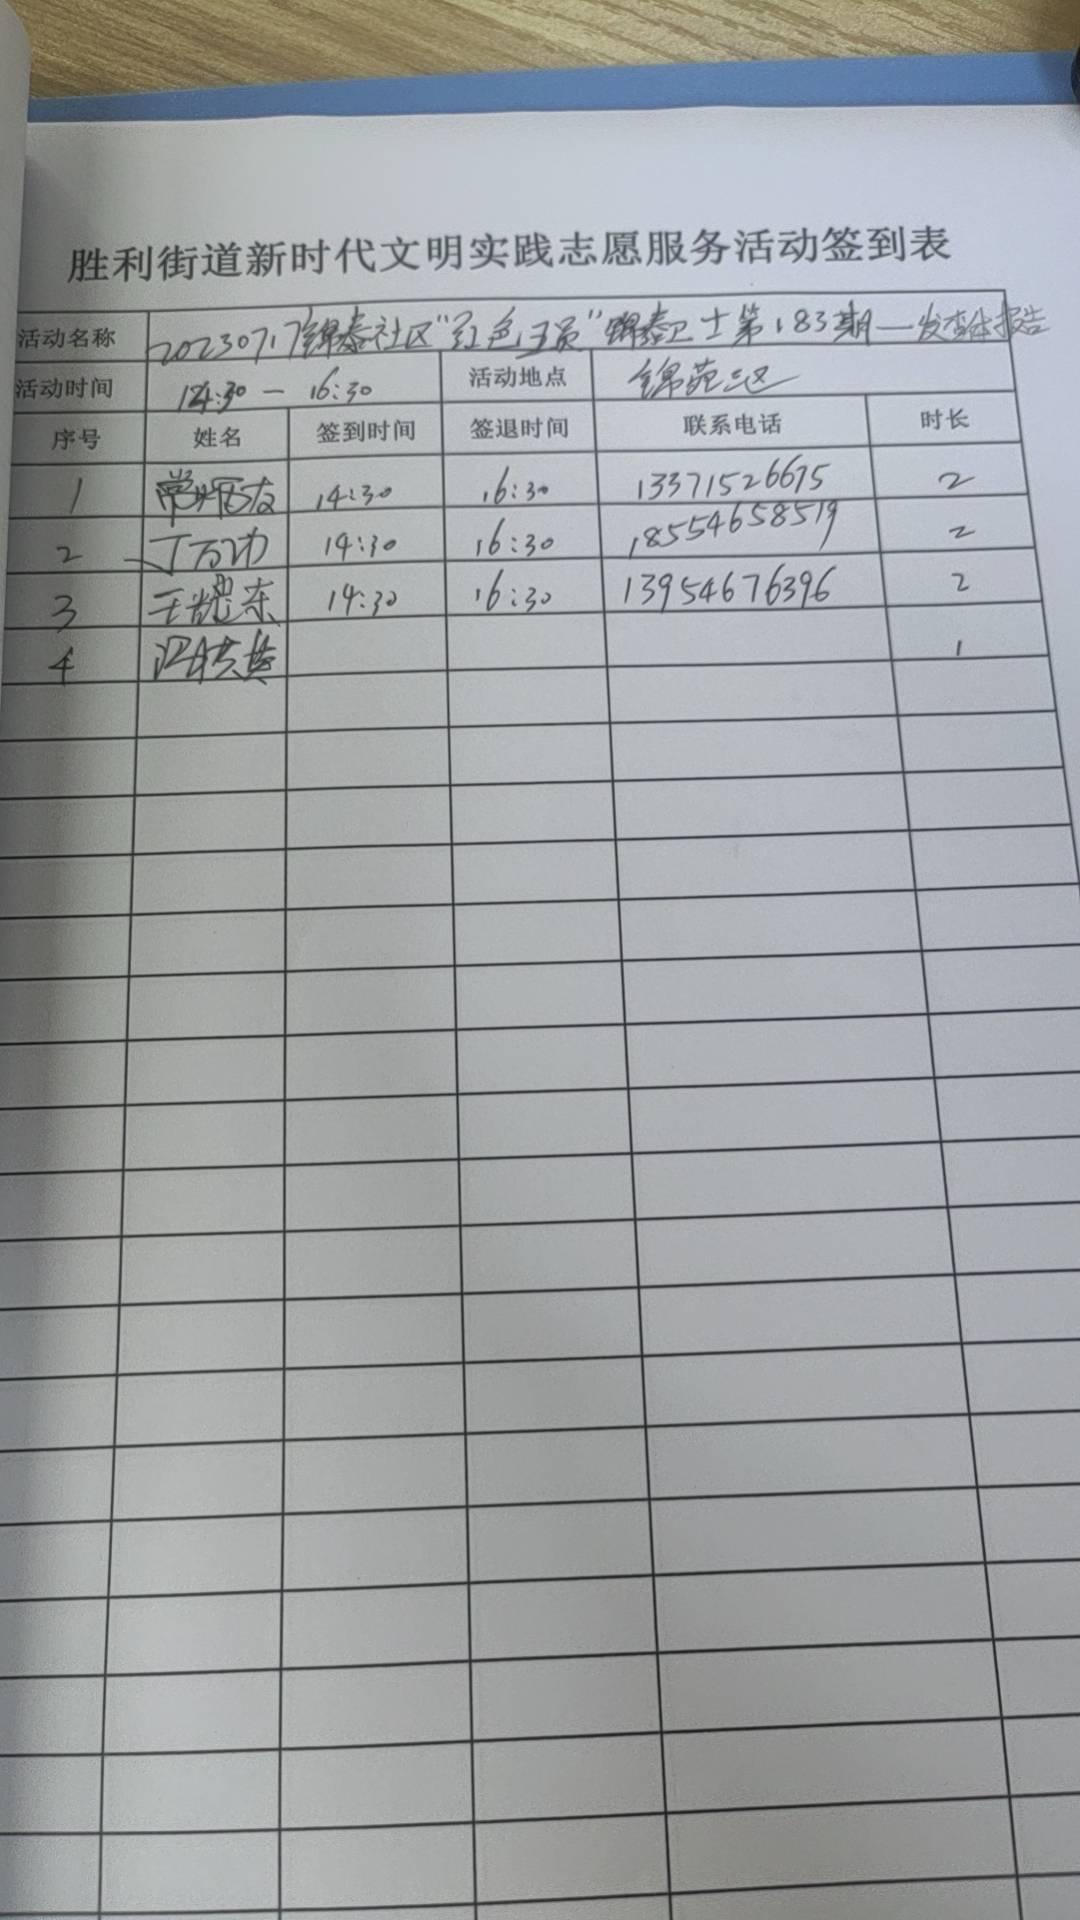 胜利街道新时代文明实践志愿服务活动签到表
活动名称 20230717锦泰社区"红色王员"锦泰卫士第183期—发查体报告
活动时间 14:30 — 16:30 活动地点 锦苑三区
序号 姓名 签到时间 签退时间 联系电话 时长
1 14:30 16:30 13371526675 2
2 丁万功 14:30 16:30 18554658519 2
3 王 东 14:30 16:30 13954676396 2
4 1